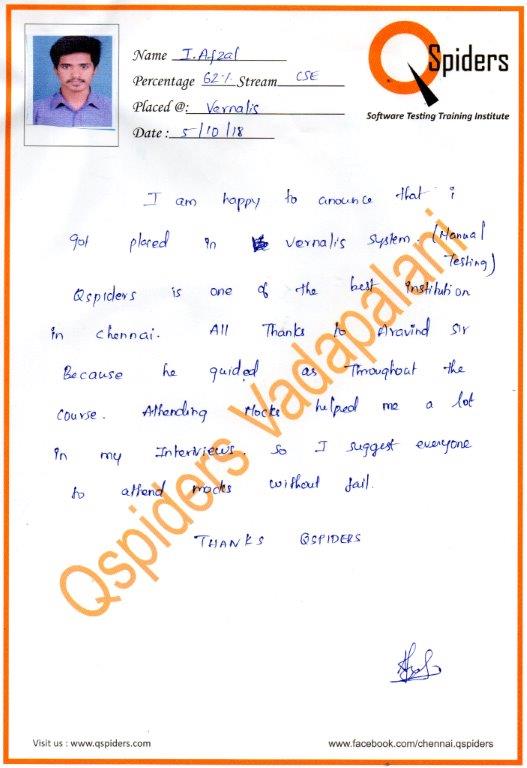 Name I. Afzal
Percentage 62% Stream CSE
Placed @: Vernalis
Date : 5/10/18
QSpiders
Software Testing Training Institute
I am happy to anounce that i
got placed in vernalis system. (Manual
Testing)
Qspiders is one of the best institution
in chennai. All Thanks to Aravind sir
Because he guided as Throughout the
course. Attending Mocks helped me a lot
in my Interviews. so I suggest everyone
to attend mocks without fail.
THANKS QSPIDERS
Qspiders Vadapalani
Visit us : www.qspiders.com
www.facebook.com/chennai.qspiders